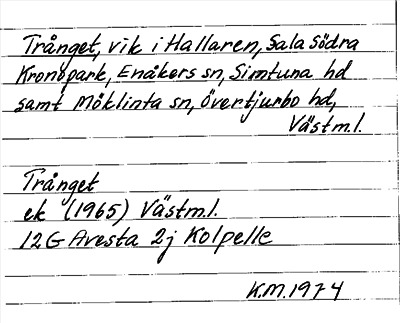 Trånget, vik i Hallaren, Sala Södra
Kronopark, Enåkers sn, Simtuna hd
samt Möklinta sn, Övertjurbo hd,
Västml.
Trånget
ek (1965) Västml.
12G Avesta 2j Kolpelle
K.M. 1974